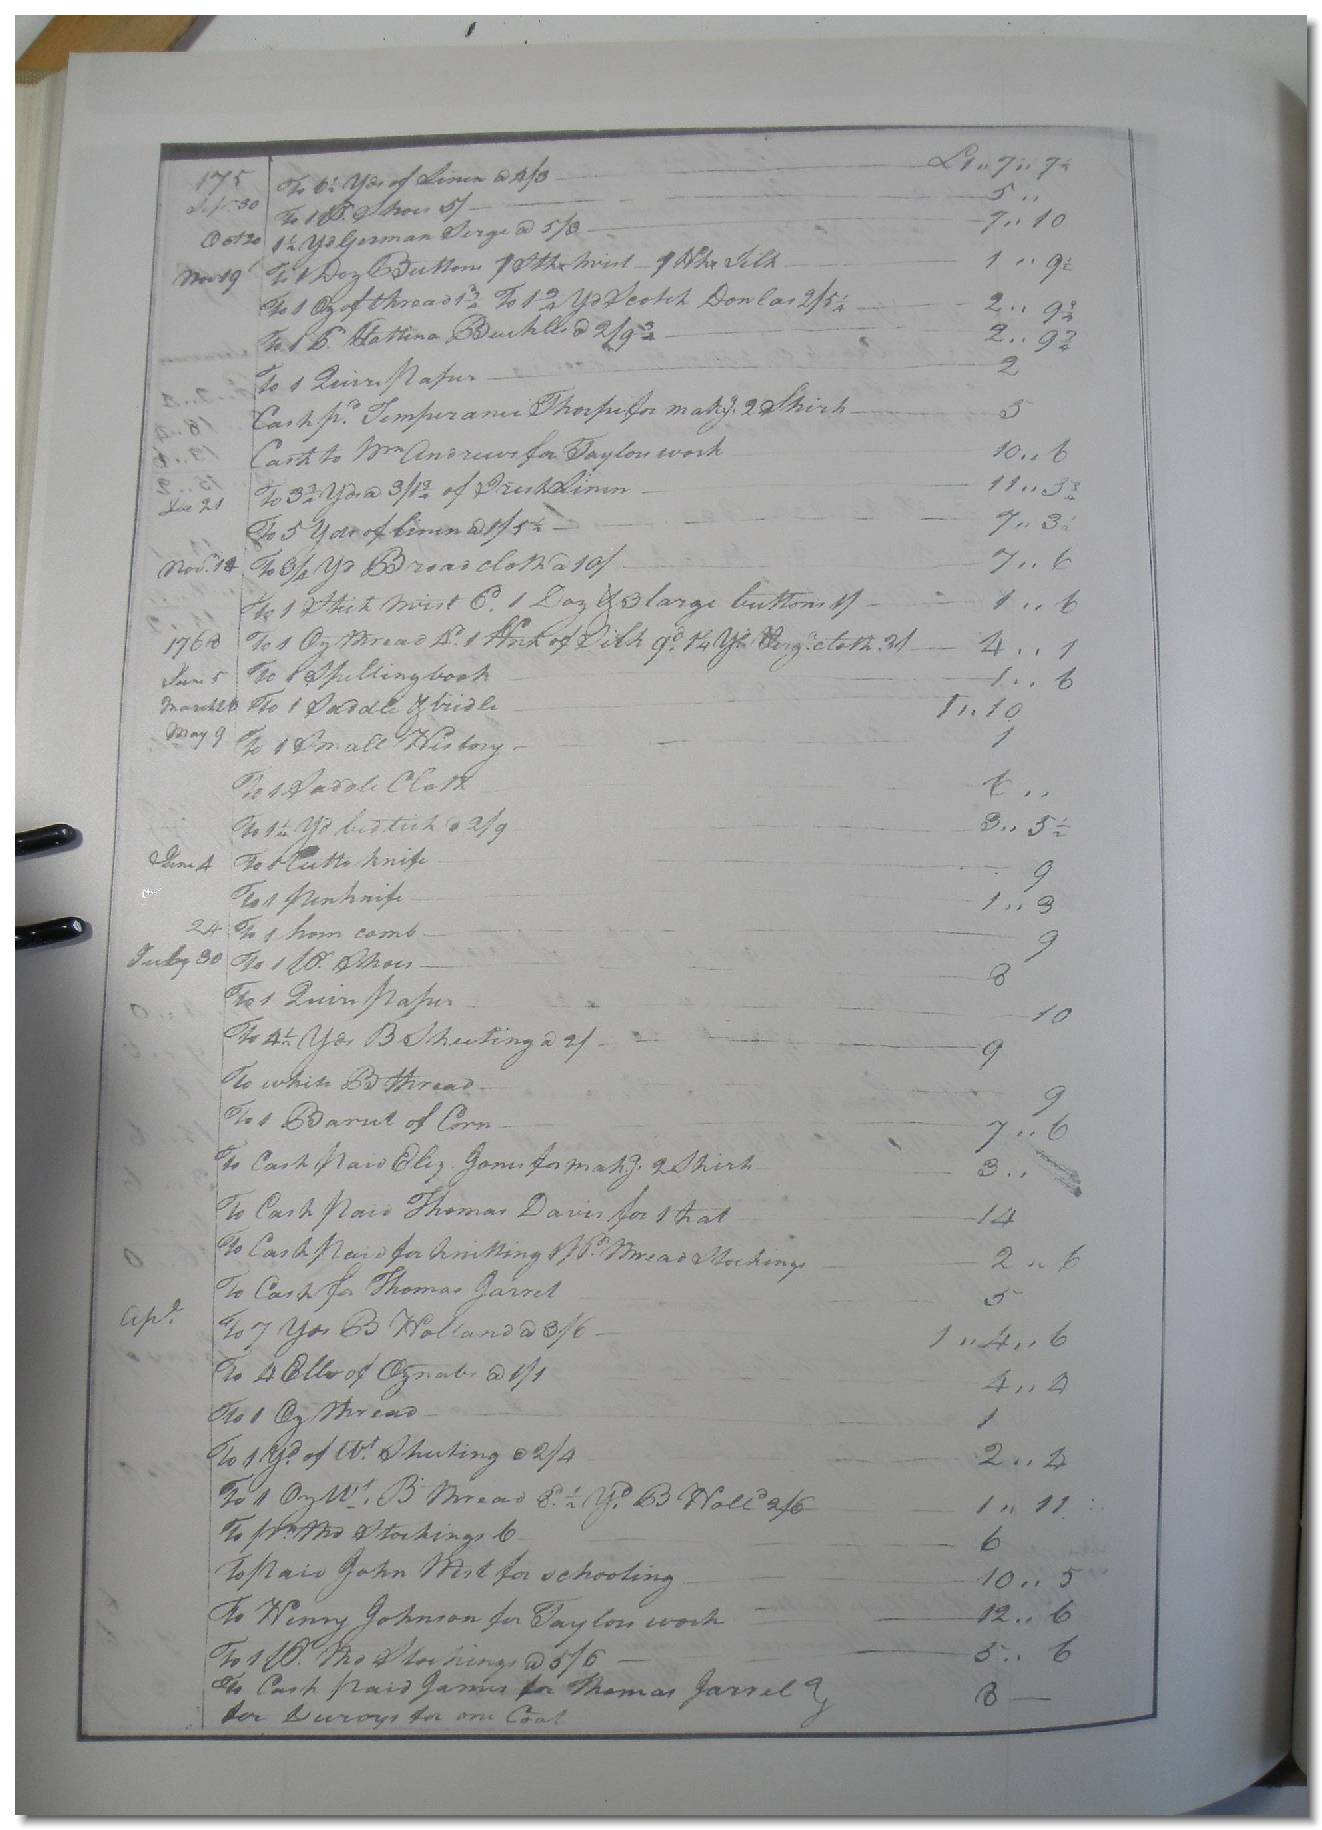 175 To 6½ Yds of Linen @ 4/3 £1,,7,,7½
Sept. 30 To 1 P. Shoes 5/ 5,,
Oct 20 1½ Yd German Serge @ 5/3 7,,10
Nov 19 To 1 Doz Buttons 1 Stk twist 1 Hk Silk 1,,9½
To 1 Oz of thread To 1 Yd Scotch 2/5¼ 2,,9¾
To 1 P. Buckles @ 2/9¾ 2,,9¾
To 1 Quire paper 2
Cash pd. Temperance Thorpe for makg. 2 Shirts 5
Cash to Wm Andrews for Taylors work 10,,6
Dec 21 To 3¾ Yds @ 3/ of Irish Linen 11,,3¾
To 5 Yds of linen @ 1/5½ 7,,3½
Nov. 14 To 3/4 Yd Broad cloth @ 10/ 7,,6
To 1 Stick twist 6d. 1 Doz & 3 large buttons 1/ 1,,6
1760 To 1 Oz thread 4d. 1 Hnk of Silk 9d. 1¼ Yd cloth 2/ 4,,1
June 5 To 1 Spelling book 1,,6
March To 1 Saddle & bridle 1,,10
May 9 To 1 Small History 1
To 1 Saddle Cloth 6,,
To 1¼ Yd bedtick @ 2/9 3,,5½
June 4 To 1 Cutto knife 9
To 1 penknife 1,,3
24 To 1 horn comb 9
July 30 To 1 P. Shoes 8
To 1 Quire paper 10
To 4½ Yds B Sheeting @ 2/ 9
To white B thread 9
To 1 Barrel of Corn 7,,6
To Cash paid Eliz. Jones for makg. 2 Shirts 3,,
To Cash paid Thomas Davis for 1 hat 14
To Cash paid for knitting 1 Pr. thread Stockings 2,,6
To Cash for Thomas Jarrel 5
Apl. To 7 Yds B Holland @ 3/6 1,,4,,6
To 4 Ells of Oznabs @ 1/1 4,,4
To 1 Oz thread 1
To 1 Yd of Wt. Sheeting @ 2/4 2,,4
To 1 Oz Wt. B Thread 8d. ½ Yd. B Holld 2/6 1,,11
To pr. thd Stockings 6 6
To paid John West for schooling 10,,5
To Henry Johnson for Taylors work 12,,6
To 1 P. thd Stockings @ 5/6 5,,6
To Cash paid James for Thomas Jarrel & 8 —
for Duroys for one Coat